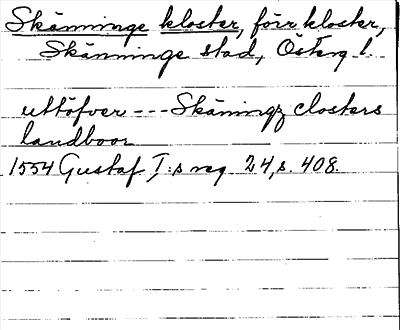 Skänninge kloster, förr kloster,
Skänninge stad, Österg l.
uttöfver --- Skäningz closters
landboor
1554 Gustaf I:s reg 24, s. 408.